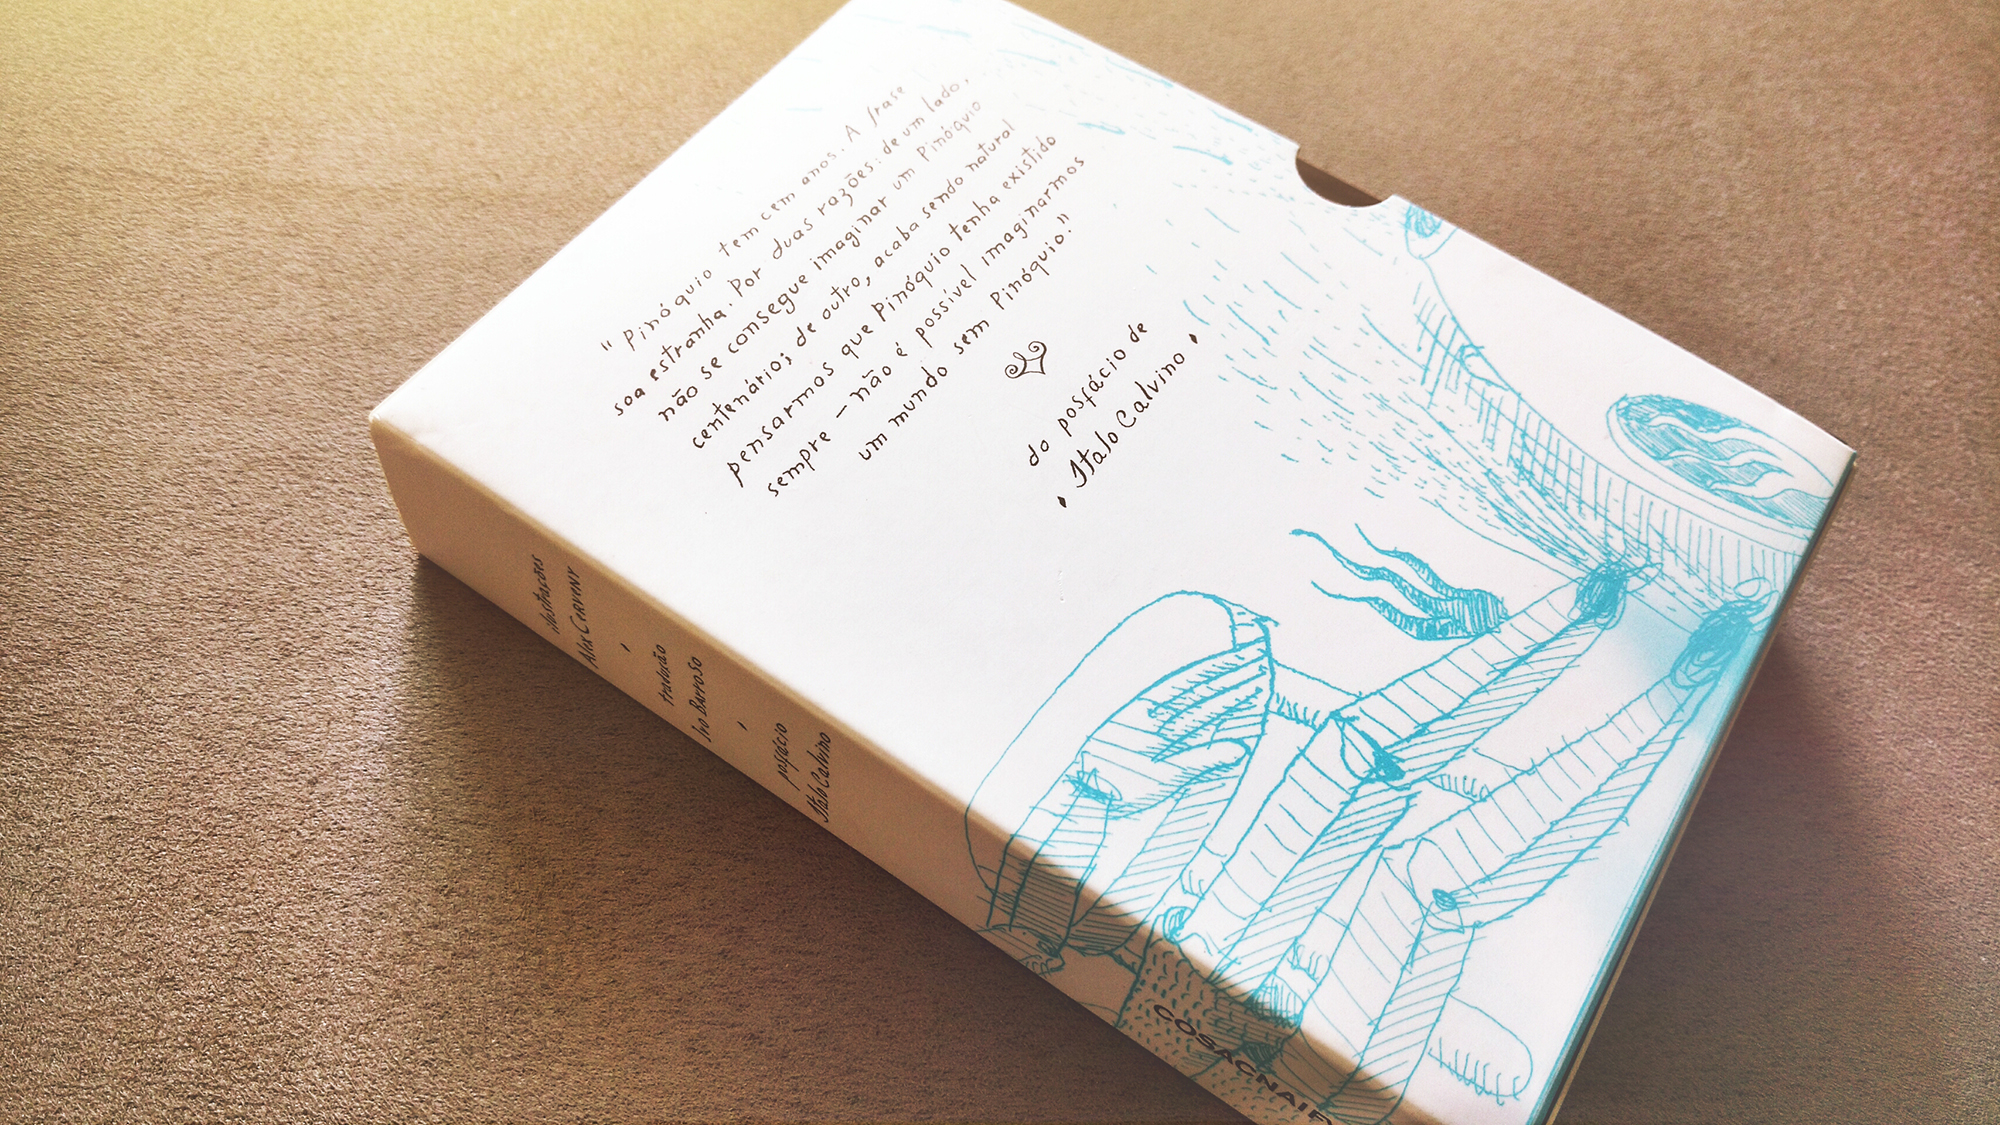 "Pinóquio tem cem anos. A frase
soa estranha. Por duas razões: de um lado,
não se consegue imaginar um Pinóquio
centenário; de outro, acaba sendo natural
pensarmos que Pinóquio tenha existido
sempre – não é possível imaginarmos
um mundo sem Pinóquio."
do posfácio de
Italo Calvino
ilustrações
Alex Cerveny
tradução
Ivo Barroso
posfácio
Italo Calvino
COSACNAIF